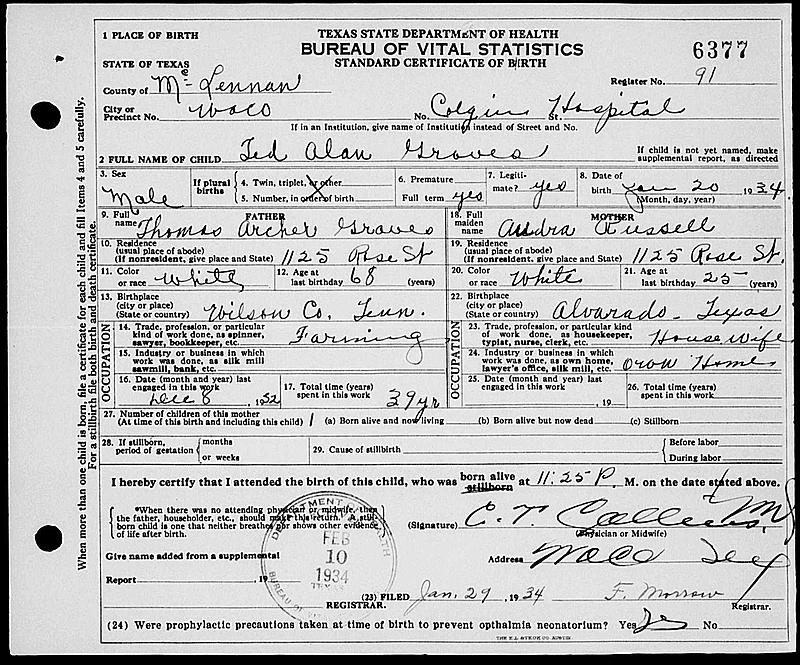 1 PLACE OF BIRTH
TEXAS STATE DEPARTMENT OF HEALTH
BUREAU OF VITAL STATISTICS
STANDARD CERTIFICATE OF BIRTH
6377
STATE OF TEXAS
Register No. 91
County of McLennan
City or Precinct No. Waco No. Colgin St. Hospital
If in an Institution, give name of Institution instead of Street and No.
2 FULL NAME OF CHILD Ted Alan Groves
If child is not yet named, make supplemental report, as directed
3. Sex Male
If plural births
4. Twin, triplet, or other
5. Number, in order of birth
6. Premature
Full term yes
7. Legitimate? yes
8. Date of birth Jan 20 1934
(Month, day, year)
FATHER
9. Full name Thomas Archer Groves
MOTHER
18. Full maiden name Audra Russell
10. Residence (usual place of abode) (If nonresident, give place and State) 1125 Rose St
19. Residence (usual place of abode) (If nonresident, give place and State) 1125 Rose St.
11. Color or race White
12. Age at last birthday 68 (years)
20. Color or race White
21. Age at last birthday 25 (years)
13. Birthplace (city or place) (State or country) Wilson Co, Tenn.
22. Birthplace (city or place) (State or country) Alvarado - Texas
OCCUPATION
14. Trade, profession, or particular kind of work done, as spinner, sawyer, bookkeeper, etc. Farming
15. Industry or business in which work was done, as silk mill sawmill, bank, etc.
16. Date (month and year) last engaged in this work Dec 8, 1932
17. Total time (years) spent in this work 39 yr
OCCUPATION
23. Trade, profession, or particular kind of work done, as housekeeper, typist, nurse, clerk, etc. House Wife
24. Industry or business in which work was done, as own home, lawyer's office, silk mill, etc. Own Home
25. Date (month and year) last engaged in this work , 19
26. Total time (years) spent in this work
27. Number of children of this mother (At time of this birth and including this child) 1 (a) Born alive and now living (b) Born alive but now dead (c) Stillborn
28. If stillborn, period of gestation months or weeks
29. Cause of stillbirth
Before labor
During labor
I hereby certify that I attended the birth of this child, who was born alive stillborn at 11:25 P. M. on the date stated above.
*When there was no attending physician or midwife, then the father, householder, etc., should make this return. A stillborn child is one that neither breathes nor shows other evidence of life after birth.
(Signature) C. T. Collins, MD
(Physician or Midwife)
Give name added from a supplemental
Report , 19
REGISTRAR.
Address Waco Tex
DEPARTMENT HEALTH
FEB
10
1934
TEXAS
BUREAU OF
(23) FILED Jan. 29, 1934 F. Morrow
Registrar.
(24) Were prophylactic precautions taken at time of birth to prevent opthalmia neonatorium? Yes Yes No
THE E.L. STECK CO. AUSTIN
When more than one child is born, file a certificate for each child and fill Items 4 and 5 carefully.
For a stillbirth file both birth and death certificate.